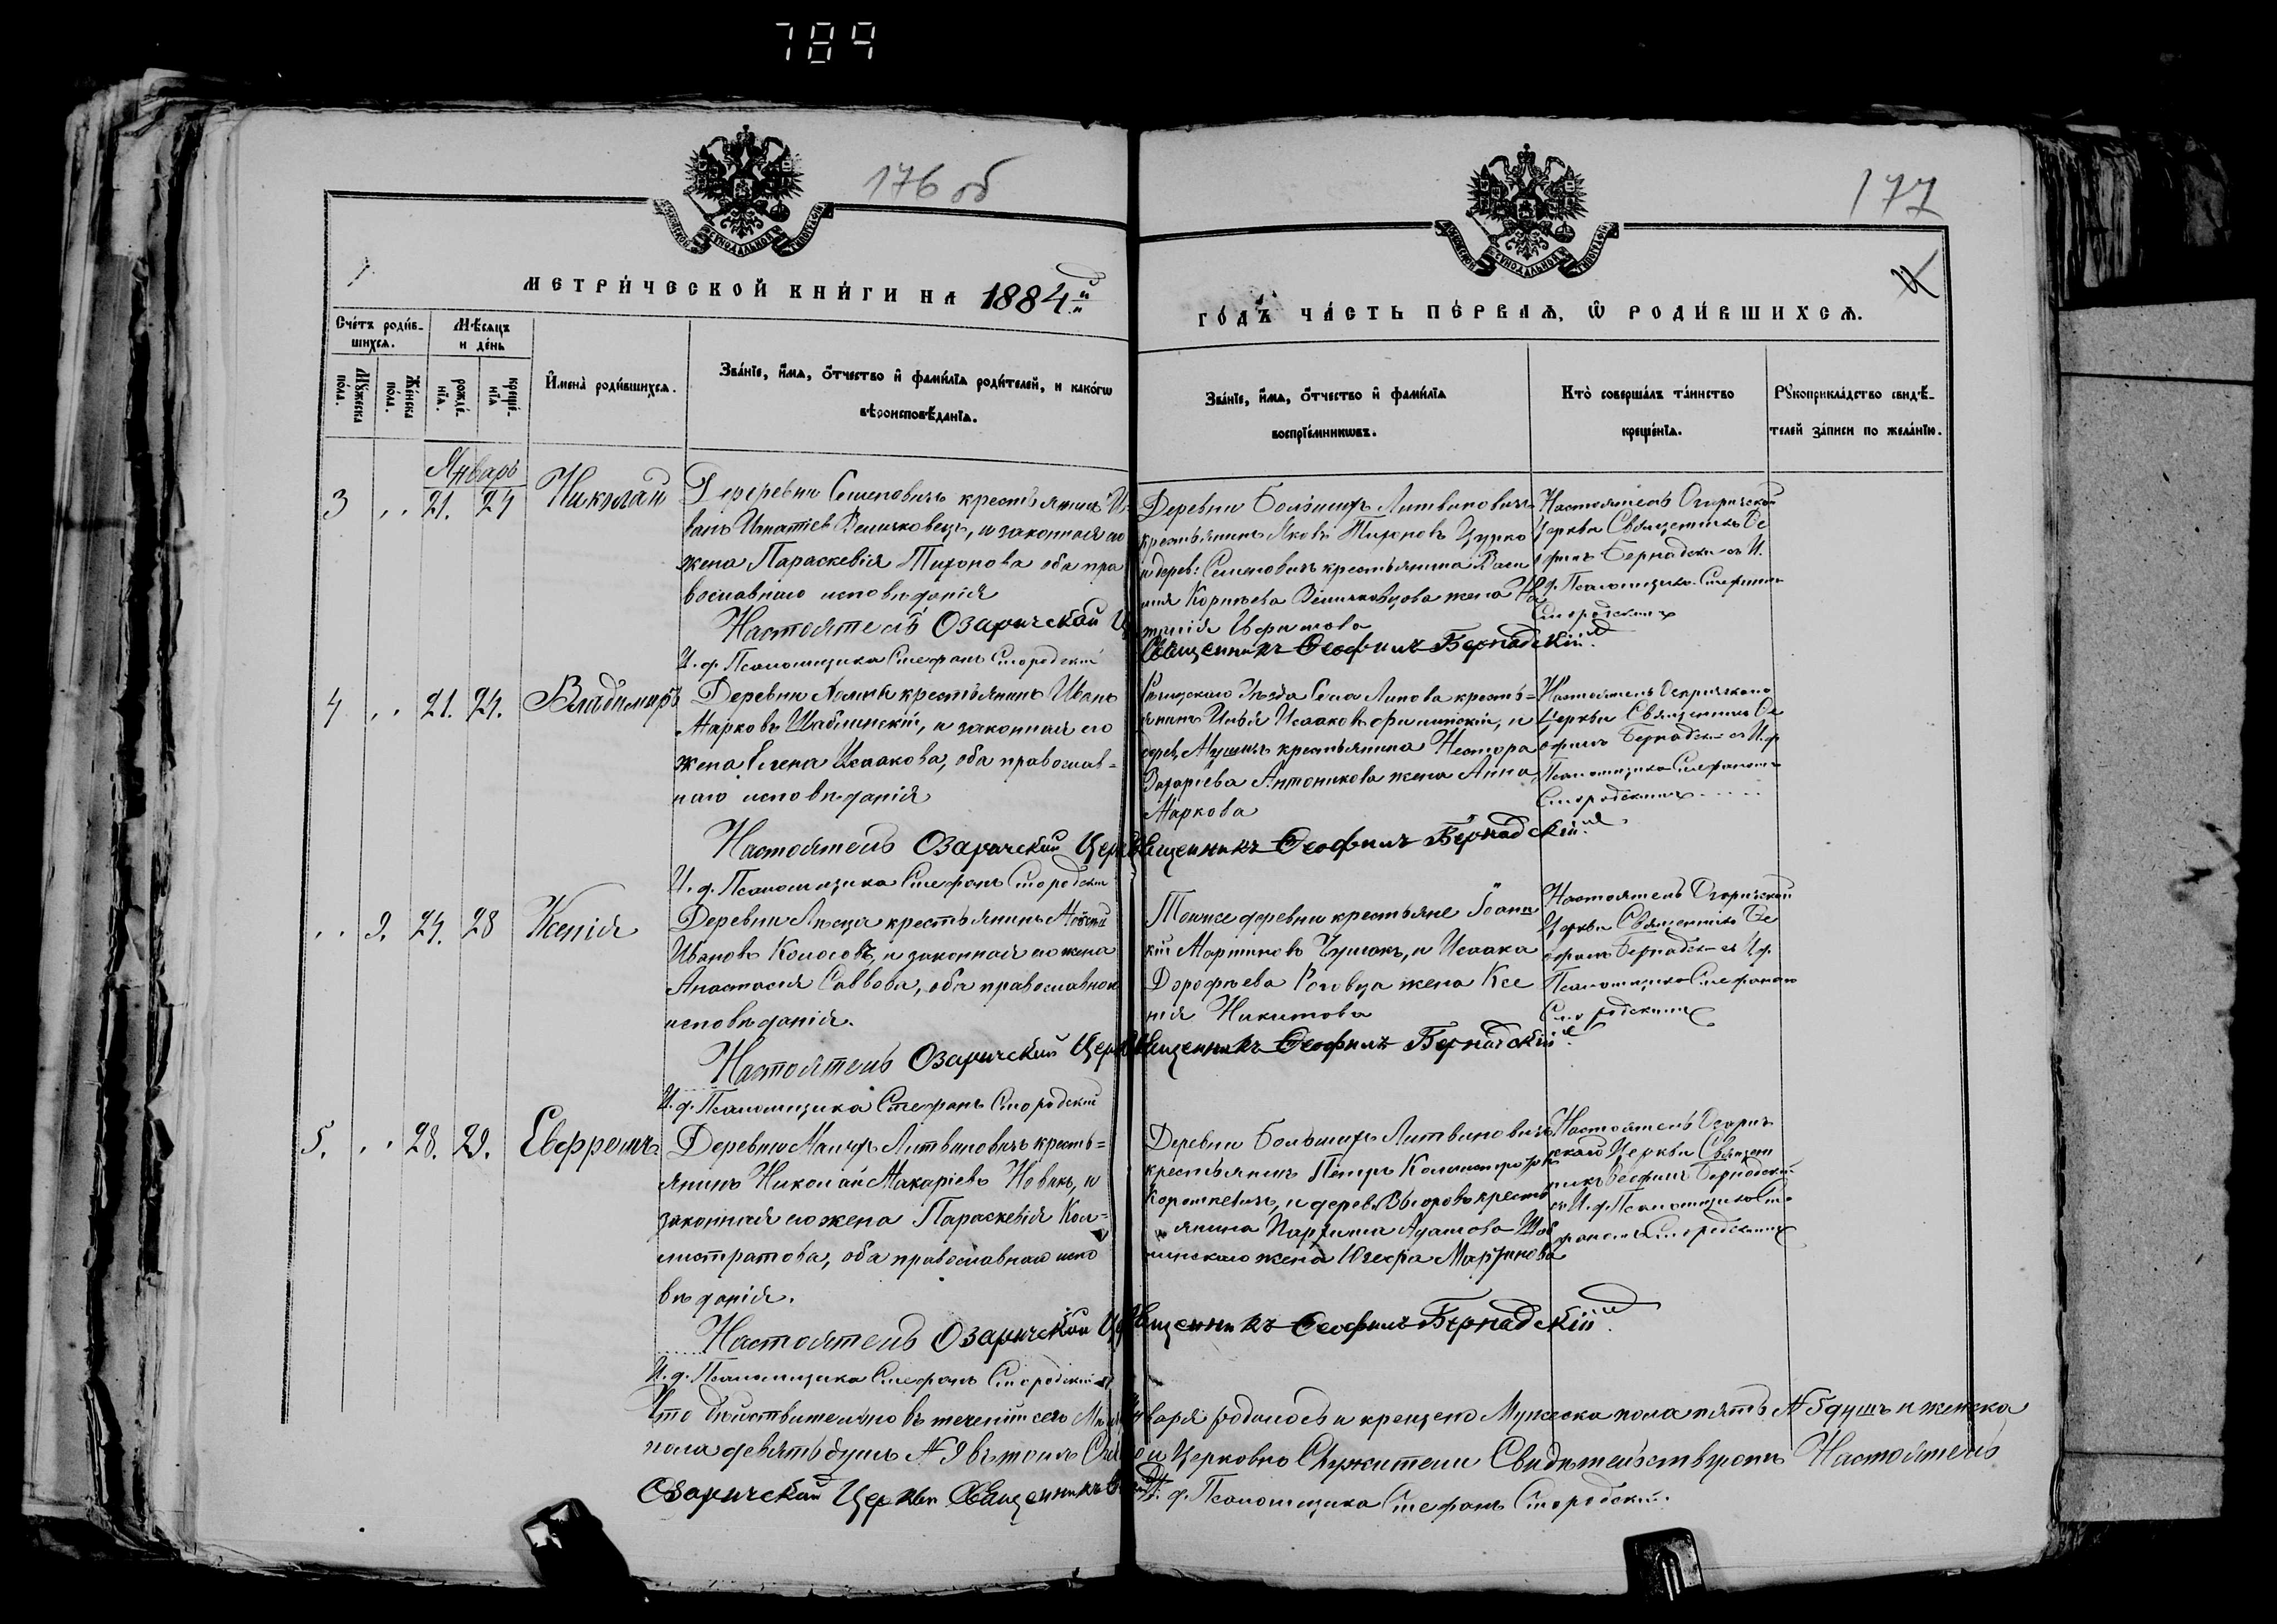 789
176 об
177
МЕТРИЧЕСКОЙ КНИГИ НА 1884й
ГОДЪ ЧАСТЬ ПЕРВАѦ, Ѿ РОДИВШИХСѦ.
Счетъ родив-
шихсѧ.
Мѣсѧцъ
и день
Мꙋжеска пола.
Женска пола.
рожде-
нїѧ.
креще-
нїѧ
Имена родившихсѧ.
Званїе, имѧ, отчество и фамилїѧ родителей, и какогѡ
вѣроисповѣданїѧ.
Званїе, имѧ, отчество и фамилїѧ
воспрїемникѡвъ.
Кто совершалъ таинство
крещенїѧ.
Рꙋкоприкладство свидѣ-
телей записи по желанїю.
Январь
3 „ 21. 24 Николай
Деревни Семеновичъ крестьянинъ И-
ванъ Игнатіев Величковецъ, и законная его
жена Параскевія Тихонова оба пра
вославнаго исповѣданія
Настоятель Озаричской
И. д. Псаломщика Стефанъ Смородскій
Деревни Большихъ Литвиновичъ
крестьянинъ Яковъ Тихоновъ Цурко
и дерев: Семеновичъ крестьянина Васи
лія Корнѣева Величковцова жена
Священникъ Ѳеофилъ Бернадскій
Настоятель Озаричской
Церкви Священникъ Ѳе
офилъ Бернадскій съ И.
д. Псаломщика Стефаномъ
Смородскимъ
4 „ 21. 24. Владимиръ
Деревни крестьянинъ Иванъ
Марковъ Шаблинскій, и законная его
жена Елена Исаакова, оба православ-
наго исповѣданія
Настоятель Озаричской Церкви
И. д. Псаломщика Стефанъ Смородскій
Уѣзда Села Липова кресть=
янинъ Илья Исааковъ Филипскій, и
дерев. крестьянина Нестора
Захаріева Антоникова жена Анна
Маркова
Священникъ Ѳеофилъ Бернадскій
Настоятель Озаричской
Церкви Священникъ Ѳе
офилъ Бернадскій съ И. д
Псаломщика Стефаномъ
Смородскимъ
„ 9. 24. 28 Ксенія
Деревни крестьянинъ
Ивановъ Колосовъ, и законная его жена
Анастасія Саввова, оба православнаго
исповѣданія.
Настоятель Озаричской Церкви
И. д. Псаломщика Стефанъ Смородскій
Тойже деревни крестьяне Іоанн
кій Мартиновъ Чумакъ, и Исаака
Дорофѣева жена Ксе
нія Никитова
Священникъ Ѳеофилъ Бернадскій
Настоятель Озаричской
Церкви Священникъ Ѳе
офилъ Бернадскій съ И. д.
Псаломщика Стефаномъ
Смородскимъ
5. „ 28. 29. Евфремъ
Деревни Малыхъ Литвиновичъ кресть=
янинъ Николай Макаріевъ Новикъ, и
законная его жена Параскевія Кал=
листратова, оба православнаго испо
вѣданія.
Настоятель Озаричской
И. д. Псаломщика Стефанъ Смородскій
Деревни Большихъ Литвиновичъ
крестьянинъ Петръ Калистратовъ
Короткевичъ, и дерев. кресть
янина Адамова Шаб
линскаго жена Мартинова
Священникъ Ѳеофилъ Бернадскій
Настоятель Озарич
ской Церкви Священ
никъ Ѳеофилъ Бернадскій
съ И. д. Псаломщика Сте
фаномъ Смородскимъ
Что дѣйствительно въ теченіи сего Января родилось и крещено Мужеска пола пять № 5 душъ и женска
пола девять душъ № 9 въ томъ и Церковно Служители Свидѣтельствуютъ Настоятель
Озаричской Церкви Священникъ И. д. Псаломщика Стефанъ Смородскій.